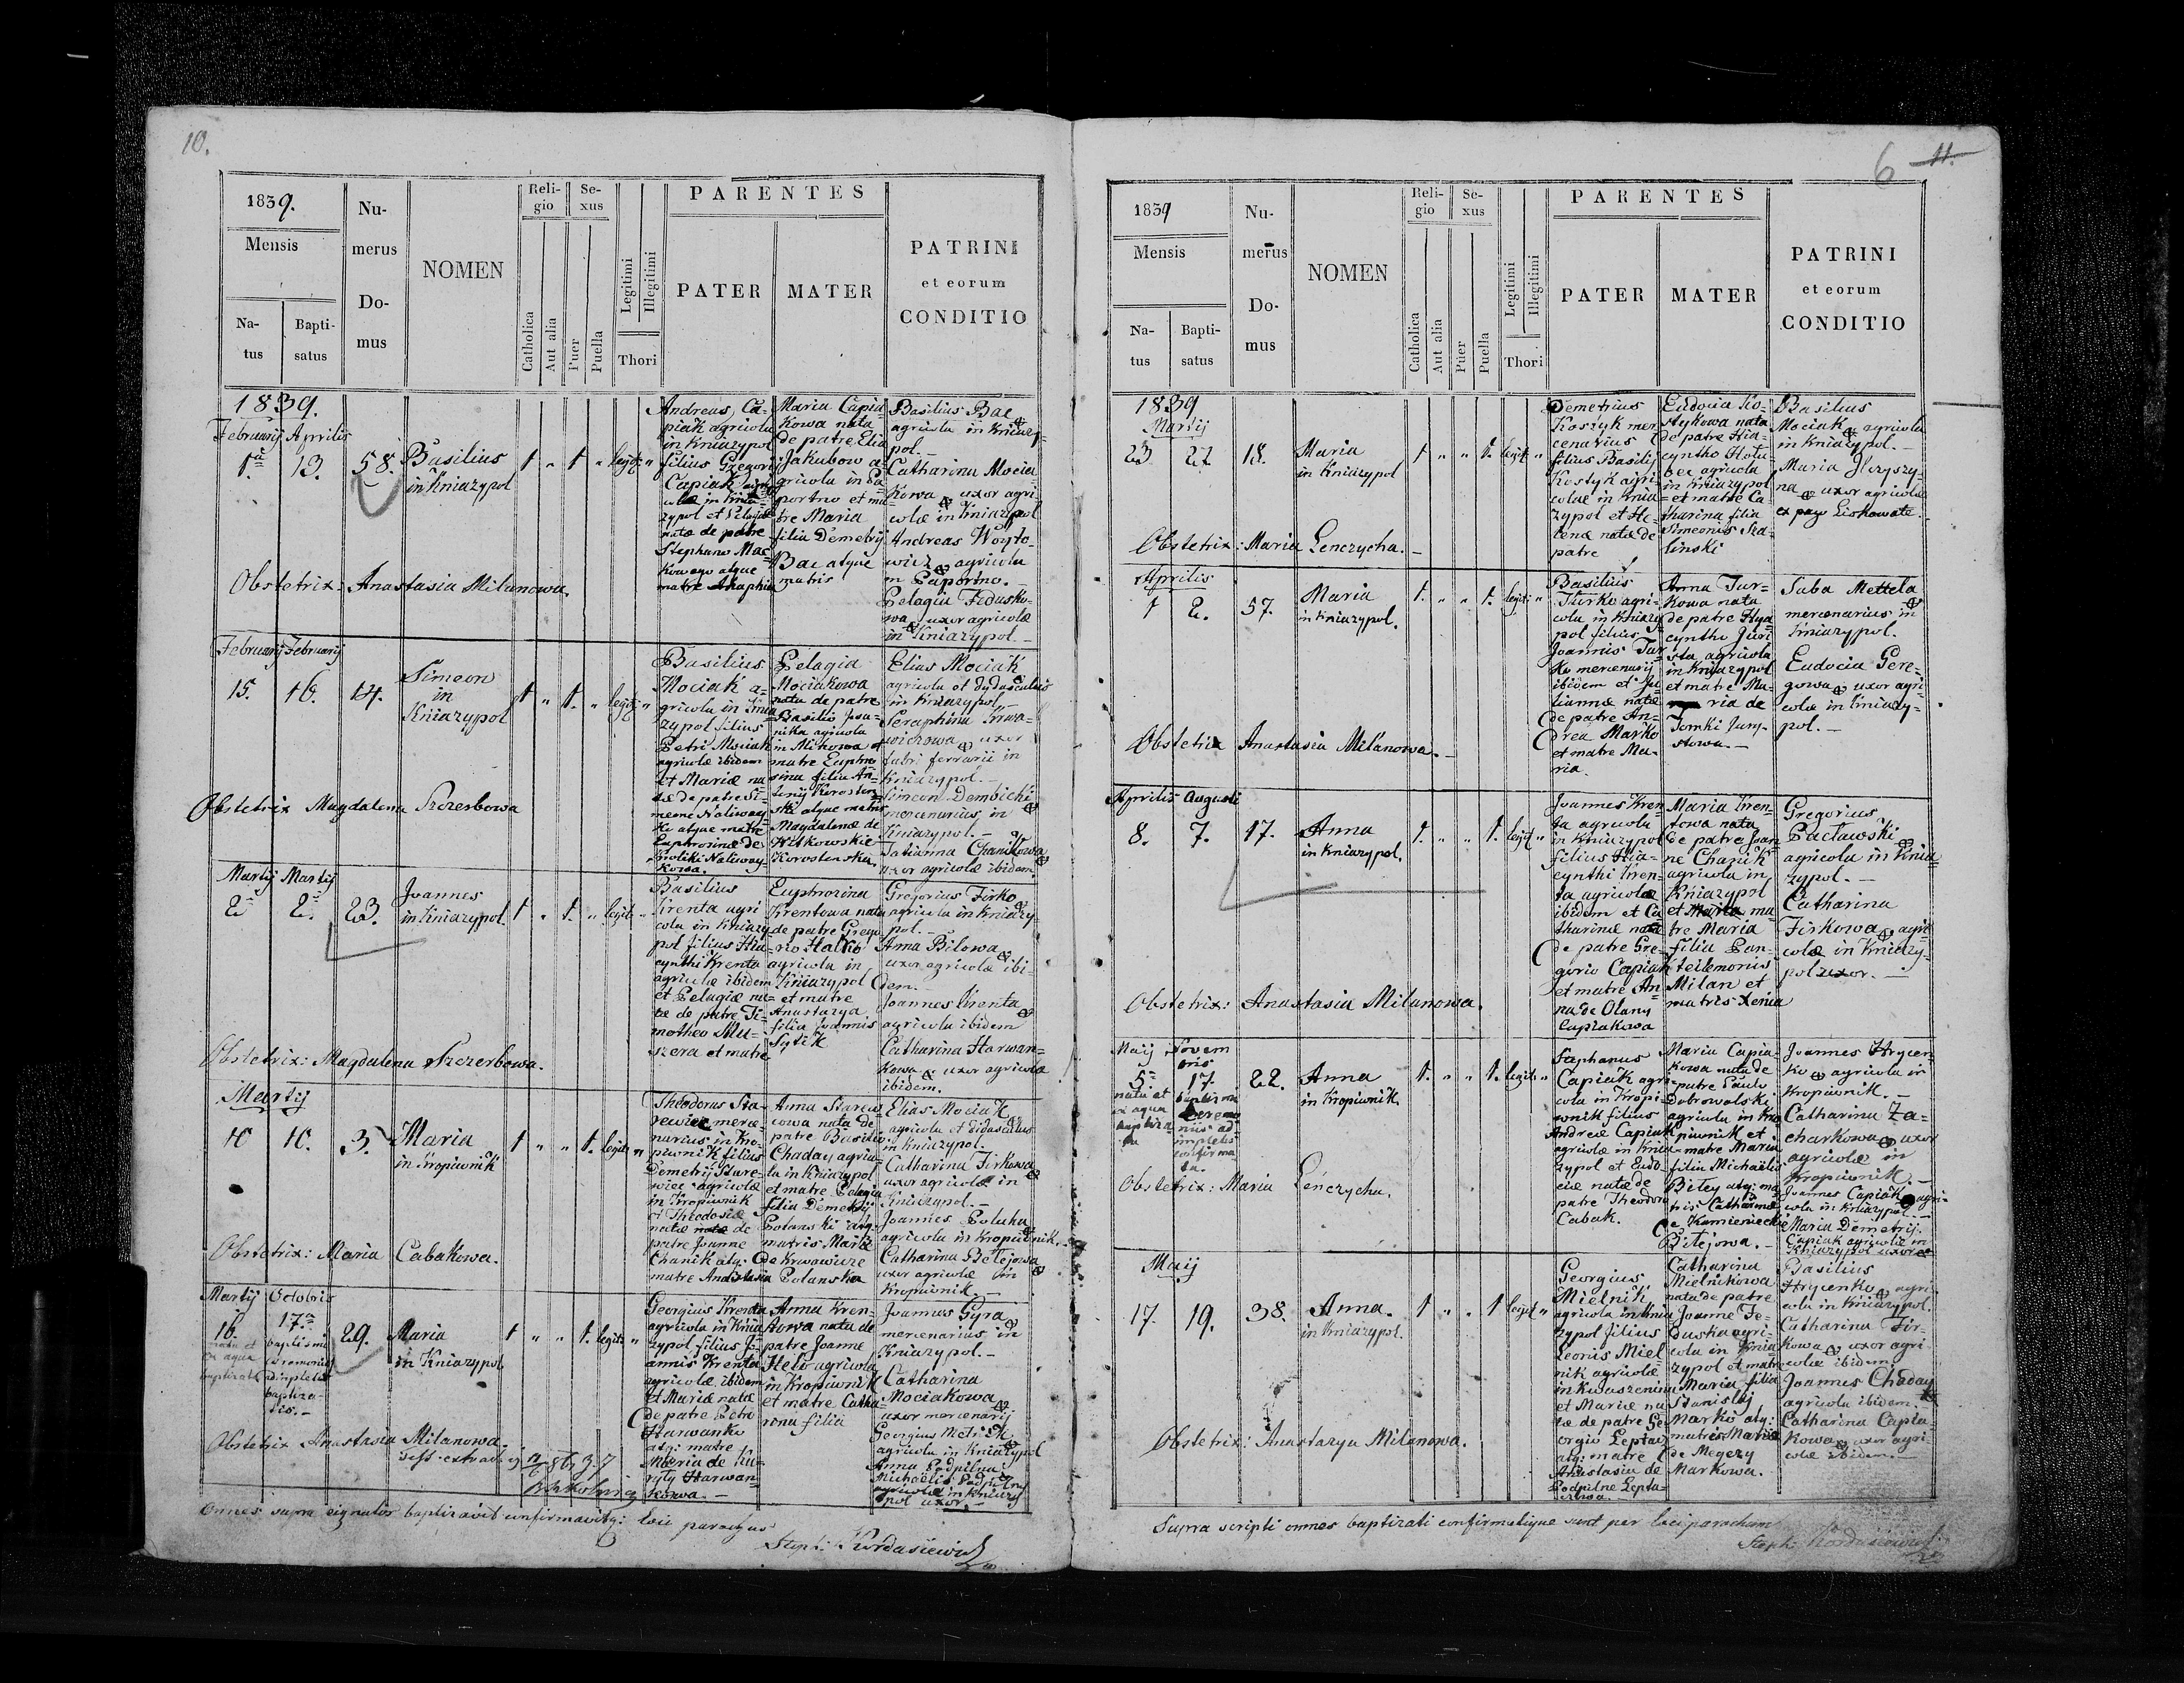 10.
1839.
Mensis
Na-
tus
Bapti-
satus
Nu-
merus
Do-
mus
NOMEN
Reli-
gio
Catholica
Aut alia
Se-
xus
Puer
Puella
Legitimi
Illegitimi
Thori
PARENTES
PATER
MATER
PATRINI
et eorum
CONDITIO
1839.
Februarij Aprilis
1ª 13. 58. Basilius
in Kniazypol
1 " 1 " legit. "
Andreas Ca-
piak agricola
in Kniazypol
filius Gregorij
Capiak agri-
colæ in Knia-
zypol et Pelagiæ
natæ de patre
Stephano Mac
kowego atque
matre Agaphia
Maria Capia
kowa nata
de patre Elia
Jakubow a-
gricola in Pa-
portno et ma-
tre Maria
filia Demetrij
Bac atque
matris
Basilius Bac
agricola in Kniazy-
pol.-
Catharina Mocia
kowa uxor agri-
colæ in Kniazypol
Andreas Woyto-
wicz agricola
in Paportno.-
Pelagia Fedusko-
wa uxor agricolæ
in Kniazypol.-
Obstetrix: Anastasia Milanowa.
Februarij Februarij
15. 16. 14. Simeon
in
Kniazypol
1 " 1. " legit. "
Basilius
Mociak a-
gricola in Knia
zypol filius
Petri Mociak
agricolæ ibidem
et Mariæ na
tæ de patre Si-
meone Naliway-
ki atque matre
Euphrosinæ de
Naliway-
kowa.
Pelagia
Mociakowa
nata de patre
Basilio
agricola
in et
matre Euphro
sina filia An-
tonij Korosten
ski atque matris
Magdalenæ de
Witkowskie
Korostenska.
Elias Mociak
agricola et dydasculus
in Kniazypol.-
Seraphina Iwa-
wiczowa uxor
fabri ferrarii in
Kniazypol.-
Simeon Dembicki
mercenarius in
Kniazypol.-
Tatianna Chanikowa
uxor agricolæ ibidem.
Obstetrix Magdalena Szczerbowa
Martij Martij
2ª 2ª. 23. Joannes
in Kniazypol.
1 " 1. " legit. "
Basilius
Krenta agri
cola in Kniazy-
pol filius Hia-
cynthi Krenta
agricolæ ibidem
et Pelagiæ na-
tæ de patre Ti-
motheo Mu-
szera et matre
Euphrozina
Krentowa nata
de patre Grego
rio Halko
agricola in
Kniazypol
et matre
Anastazya
filia Joannis
Sytik
Gregorius Firko
agricola in Kniazy-
pol.-
Anna Bilowa
uxor agricolæ ibi
dem.-
Joannes Krenta
agricola ibidem
Catharina Harwan-
kowa uxor agricolæ
ibidem.
Obstetrix: Magdalena Szczerbowa.
Martij
10 10. 3. Maria
in Kropiwnik
1 " " 1. legit. "
Theodorus Sta-
rewiec merce-
narius in Kro-
piwnik filius
Demetrij Stare-
wiec agricolæ
in Kropiwnik
et Theodosiæ
natæ de
patre Joanne
Chanik atq:
matre Anastasia
Anna Starew-
cowa nata de
patre Basilio
Chaday agrico-
la in Kniazypol
et matre Pelagia
filia Demetrij
Polanski atq:
matris Mariæ
de Krwawicze
Polanska
Elias Mociak
agricola et didasculus
in Kniazypol.
Catharina Firkowa
uxor agricolæ in
Kniazypol.-
Joannes Poluha
agricola in Kropiwnik.
Catharina Betejowa
uxor agricolæ in
Kropiwnik.-
Obstetrix: Maria Cabakowa.
Martij Octobris
16. 17ª 29. Maria
in Kniazypol
nata et
ex aqua
baptizata
baptismi
cæremonijs
adimpletis
baptiza-
tis.-
1 " " 1. legit. "
Georgius Krenta
agricola in Knia
zypol filius Jo-
annis Krenta
agricolæ ibidem
et Mariæ natæ
de patre Petro
Harwanko
atq: matre
Maria de Ku-
ryty Harwan-
kowa.-
Anna Kren-
towa nata de
patre Joanne
Helo agricola
in Kropiwnik
et matre Catha-
rina filia
Joannes Gyra
mercenarius in
Kniazypol.-
Catharina
Mociakowa
uxor mercenarij
Georgius Metrik
agricola in Kniazypol
Anna Podpilna
Michaëlis Podpilny
agricolæ in Kniazy
pol uxor.-
Obstetrix Anastasia Milanowa.
Omnes supra signatos baptizavit confirmavitq: loci parochus
Steph: Kordasiewicz
6 11.
1839
Mensis
Na-
tus
Bapti-
satus
Nu-
merus
Do-
mus
NOMEN
Reli-
gio
Catholica
Aut alia
Se-
xus
Puer
Puella
Legitimi
Illegitimi
Thori
PARENTES
PATER
MATER
PATRINI
et eorum
CONDITIO
1839
Martij
23 27. 18. Maria
in Kniazypol
1 " " 1. legit. "
Demetrius
Kostyk mer
cenarius
filius Basilij
Kostyk agri-
colæ in Knia-
zypol et He-
lenæ natæ de
patre
Eudocia Ko-
stykowa nata
de patre Hia-
cyntho Holu-
bec agricola
in Kniazypol
et matre Ca-
tharina filia
Simeonis Ska-
linski
Basilius
Mociak agricola
in Kniazypol.-
Maria Hryszy-
na uxor agricolæ
ex pago Liskowate.
Obstetrix: Maria Lenczycha.-
Aprilis
1 2. 57. Maria
in Kniazypol.
1. " " 1. legit. "
Basilius
Turko agri-
cola in Kniazy
pol filius
Joannis Tur
ko mercenarij
ibidem et Ju
liannæ natæ
de patre An-
drea Marko
et matre Ma-
ria.
Anna Tur-
kowa nata
de patre Hya-
cyntho Juri
sta agricola
in Kniazypol
et matre Ma-
ria de
Tomki Jury-
stowa.-
Saba Mettela
mercenarius in
Kniazypol.
Eudocia Gere-
gowa uxor agri-
colæ in Kniazy-
pol.-
Obstetrix Anastasia Milanowa.-
Aprilis Augusti
8. 7. 17. Anna
in Kniazypol.
1. " " 1. legit. "
Joannes Kren
ta agricola
in Kniazypol
filius Hia-
cynthi Kren-
ta agricolæ
ibidem et Ca
tharinæ natæ
de patre Gre-
gorio Capiak
et matre An-
na de Olany
Capiakowa
Maria Kren-
towa nata
de patre Joan-
ne Chanik
agricola in
Kniazypol
et ma-
tre Maria
filia Pan-
teilemonis
Milan et
matris Xenia
Gregorius
Pactawski
agricola in Knia
zypol.-
Catharina
Firkowa agri-
colæ in Kniazy-
pol uxor.-
Obstetrix: Anastasia Milanowa.
Maij Novem
bris
5ª 17. 22. Anna
in Kropiwnik
nata et
ex aqua
baptiza-
ta
baptismi
ceremo
niis ad
impletis
confirma
ta.
1. " " 1. legit. "
Stephanus
Capiak agri-
cola in Kropi-
wnik filius
Andreæ Capiak
agricolæ in Knia-
zypol et Eudo-
ciæ natæ de
patre Theodoro
Cabak.
Maria Capia-
kowa nata de
patre Paulo
Dobrowolski
agricola in Kro
piwnik et
matre Maria
filia Michaëlis
Bitey atq: ma
tris Catharinæ
de Kamienieckie
Bitejowa.-
Joannes Hrycen
ko agricola in
Kropiwnik.-
Catharina Za-
charkowa uxor
agricolæ in
Kropiwnik.-
Joannes Capiak agri-
cola in Kniazypol.-
Maria Demetrij
Capiak agricolæ in
Kniazypol uxor
Obstetrix: Maria Lenczycha.
Maij
17. 19. 38. Anna.
in Kniazypol.
1 " " 1 legit. "
Georgius
Mielnik
agricola in Knia
zypol filius
Leonis Miel
nik agricolæ
in Kwaszenina
et Mariæ na
tæ de patre Ge
orgio Leptac
atq: matre
Anastasia de
Podpilne Lepta-
Catharina
Mielnikowa
nata de patre
Joanne Fe-
duska agri-
cola in Knia
zypol et matre
Maria filia
Stanislaj
Marko atq:
matris Mariæ
de Megezy
Markowa.
Basilius
Hrycenko agri-
cola in Kniazypol.
Catharina Fir-
kowa uxor agri
colæ ibidem.
Joannes Chaday
agricola ibidem.
Catharina Capia-
kowa uxor agri-
colæ ibidem.-
Obstetrix: Anastazya Milanowa.
Supra scripti omnes baptizati confirmatique sunt per loci parochum
Steph: Kordasiewicz